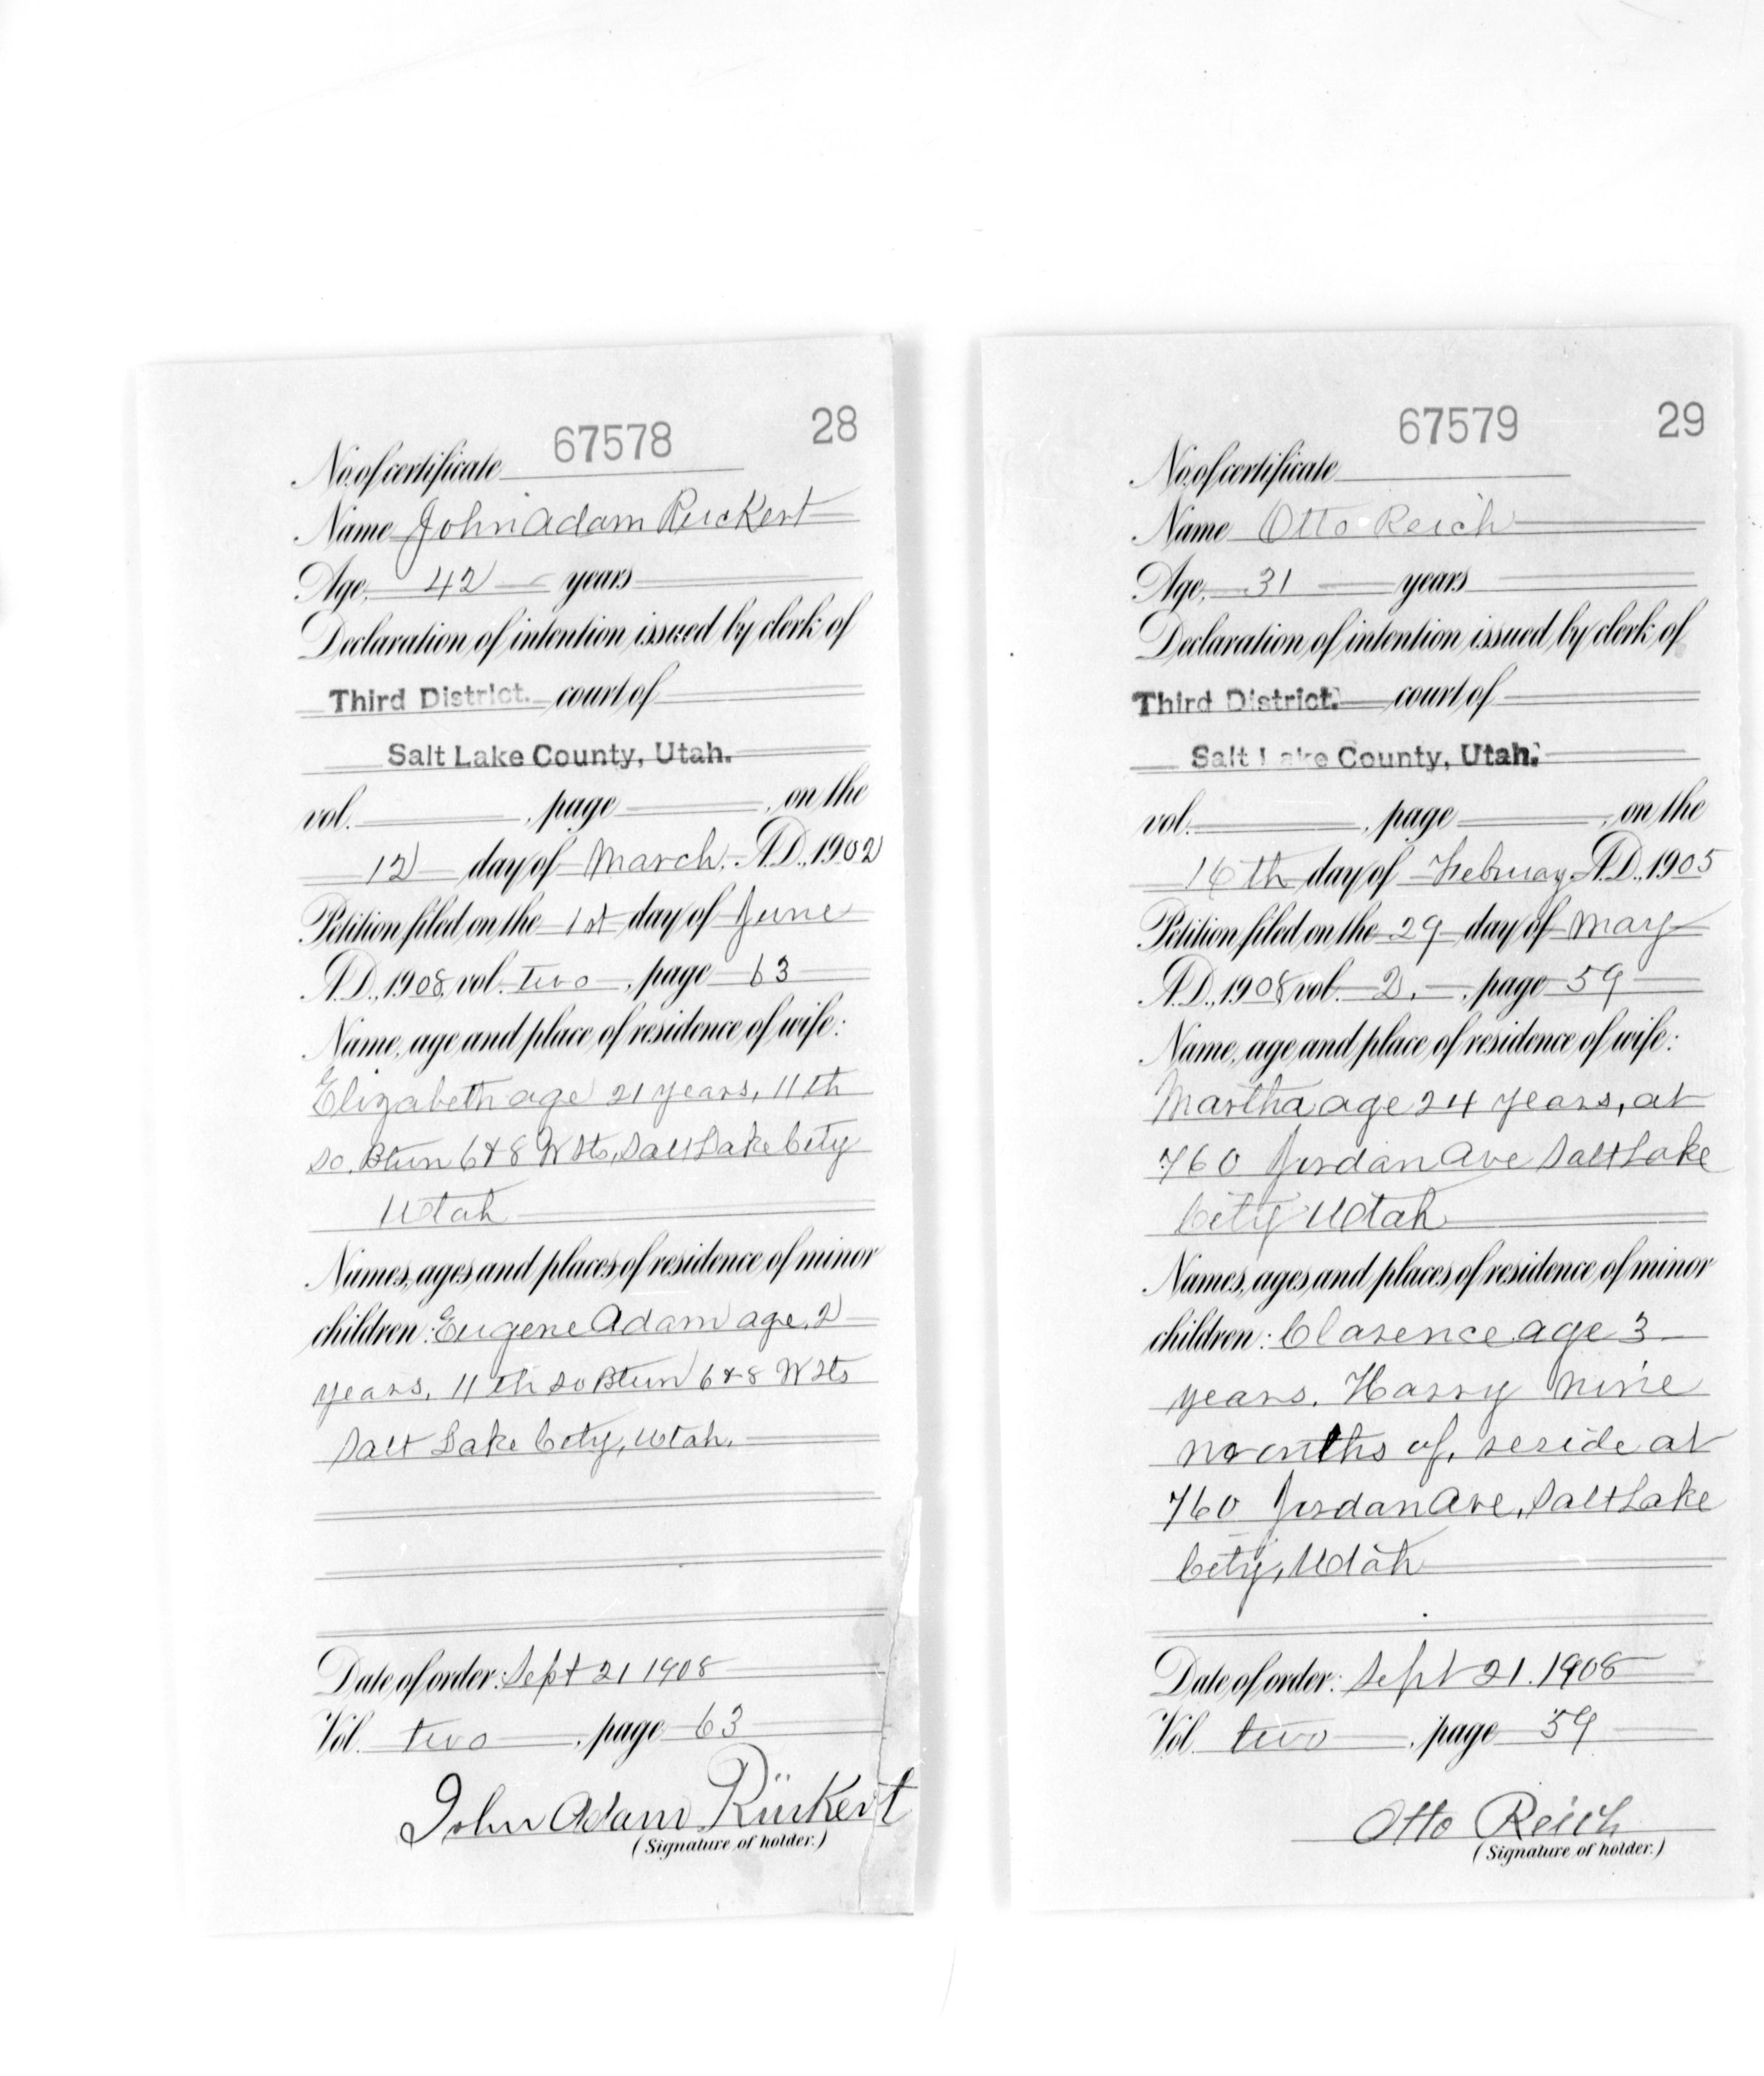 67578 28
No. of certificate
Name John Adam Ruckert
Age, 42 years
Declaration of intention issued by clerk of
Third District. court of
Salt Lake County, Utah.
vol. , page , on the
12 day of March, A.D., 1902
Petition filed on the 1st day of June
A.D., 1908, vol. two , page 63
Name, age and place of residence of wife:
Elizabeth age 21 years, 11th
So. Btwn 6 & 8 W Sts, Salt Lake City
Utah
Names, ages and places of residence of minor
children: Eugene Adam age, 2
years, 11th So Btwn 6 & 8 W Sts
Salt Lake City, Utah.
Date of order: Sept 21 1908
Vol. two , page 63
John Adam Rückert
(Signature of holder.)
67579 29
No. of certificate
Name Otto Reich
Age, 31 years
Declaration of intention issued by clerk of
Third District. court of
Salt Lake County, Utah.
vol. , page , on the
16th day of Februay A.D., 1905
Petition filed on the 29 day of May
A.D., 1908 vol. 2, , page 59
Name, age and place of residence of wife:
Martha age 24 years, at
760 Jordan Ave Salt Lake
City Utah
Names, ages and places of residence of minor
children: Clarence age 3
years. Harry nine
months of, reside at
760 Jordan Ave, Salt Lake
City, Utah
Date of order: Sept 21. 1908
Vol. two , page 59
Otto Reich
(Signature of holder.)